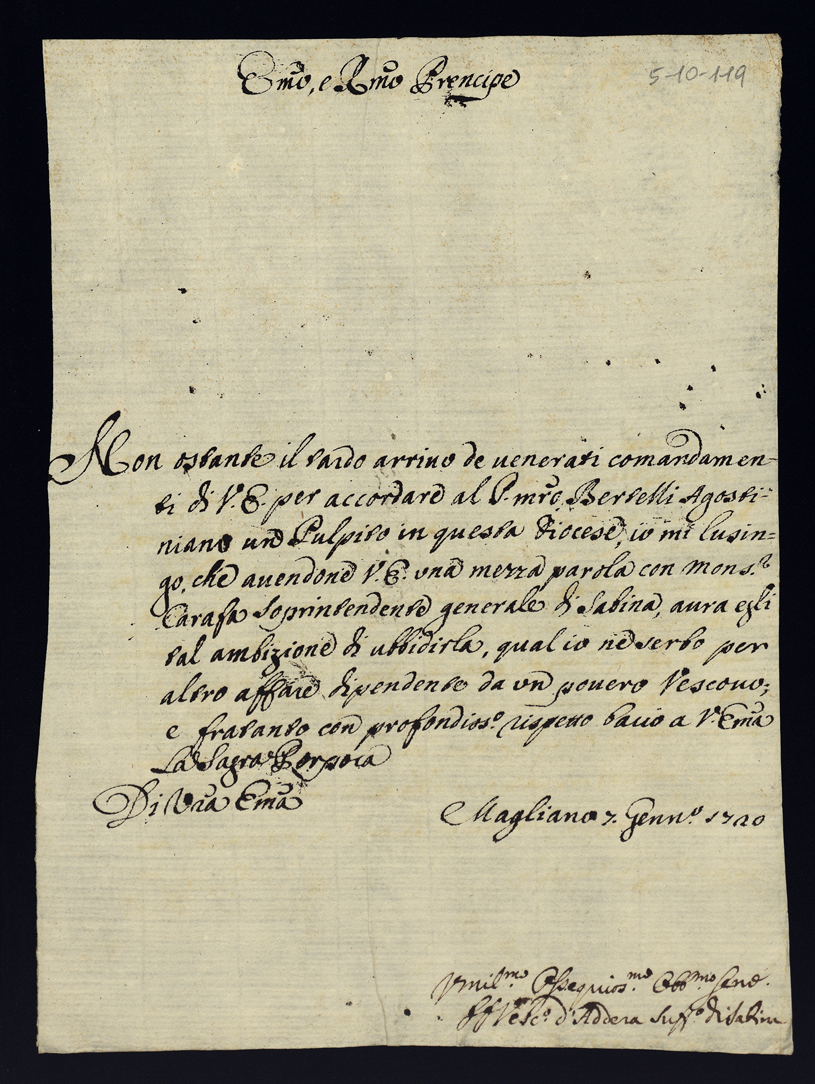 Emo, e Rmo Prencipe
5-10-119
Non ostante il tardo arriuo de uenerati comandamen-
ti di V. E. per accordare al P. mro Bertelli Agosti-
niano un Pulpito in questa Diocese, io mi lusin=
go, che auendone V. E. una mezza parola con Mons.r
Carafa Soprintendente generale di Sabina, aura egli
tal ambizione di ubbidirla, qual io ne serbo per
altro affare dipendente da un pouero Vescouo;
e fratanto con profondiss.o rispetto bacio a V. Ema
La Sagra Porpora
Di Vra Ema
Magliano 7. Genn.o 1720
Vmil.mo Ossequios.mo Obb.mo Serv.
Vesc.o d'Addera Suff.o di Sabina